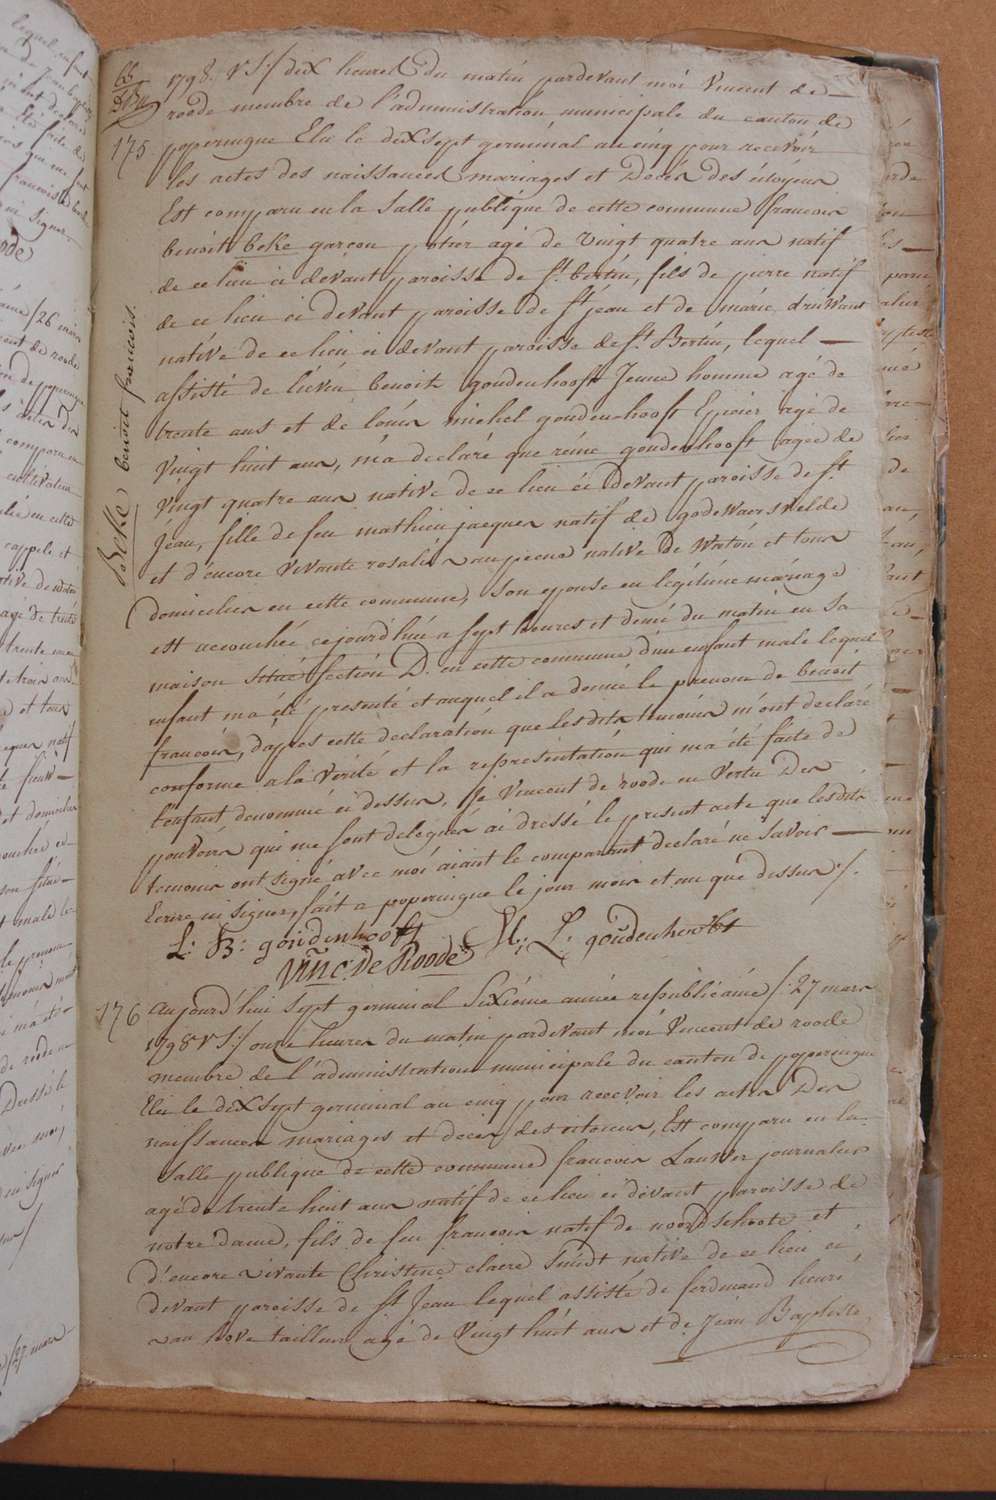 65
175
1798. V S:/ dix heures du matin pardevant moi Vincent de
roode membre de l'administration municipale du canton de
poperingue Elu le dix sept germinal an cinq pour recevoir
les actes des naissances mariages et Décès des citoyens
Est comparu en la Salle publique de cette commune francois
benoit beke garçon potier agé de Vingt quatre ans natif
de ce lieu ci devant paroisse de St. bertin, fils de pierre natif
de ce lieu ci devant paroisse de St jean et de marie
native de ce lieu ci devant paroisse de St. Bertin, lequel —
assisté de liévin benoit goudenhooft Jeune homme agé de
trente ans et de louis michel goudenhooft Epicier agé de
Vingt huit ans, m'a declaré que reine goudenhooft agée de
Vingt quatre ans native de ce lieu ci Devant paroisse de St.
Jean, fille de feu mathieu jacques natif de godewaersvelde
et d'encore Vivante rosalie native De Watou et tous
domiciliés en cette commune, Son epouse en légitime mariage
est accouchée cejourd'hui a sept heures et demie du matin en Sa
maison située Section D. en cette commune d'un enfant male lequel
enfant m'a été presenté et auquel il a donné le prenom de benoit
francois, d'après cette déclaration que les dits temoins m'ont declaré
conforme a la Vérité et la représentation qui m'a été faite de
l'enfant denommé ci dessus, Je Vincent de roode en Vertu Des
pouvoirs qui me sont delegués ai dressé le present acte que lesdits
temoins ont signé avec moi aiant le comparant declaré ne Savoir —
Ecrire ni signer, fait a poperingue le jour mois et an que dessus /.
L: B: goudenhooft M: L: goudenhooft
Vinc: De Roode
Beke benoit francois.
176
Aujourd'hui Sept germinal Sixième année republicaine /: 27 mars
1798 V S:/ onze heures du matin pardevant moi Vincent de roode
membre de l'administration municipale du canton de poperingue
Elu le dix sept germinal an cinq pour recevoir les actes Des
naissances mariages et deces des citoiens, Est comparu en la
Salle publique de cette commune francois Lauwer journalier
agé de trente huit ans natif de ce lieu ci devant paroisse de
notre dame, fils de feu francois natif de noordschoote et
d'encore vivante Christine claire Smidt native de ce lieu ci
devant paroisse de St Jean lequel assisté de ferdinand
van hove tailleur agé de Vingt huit ans et de Jean Baptiste